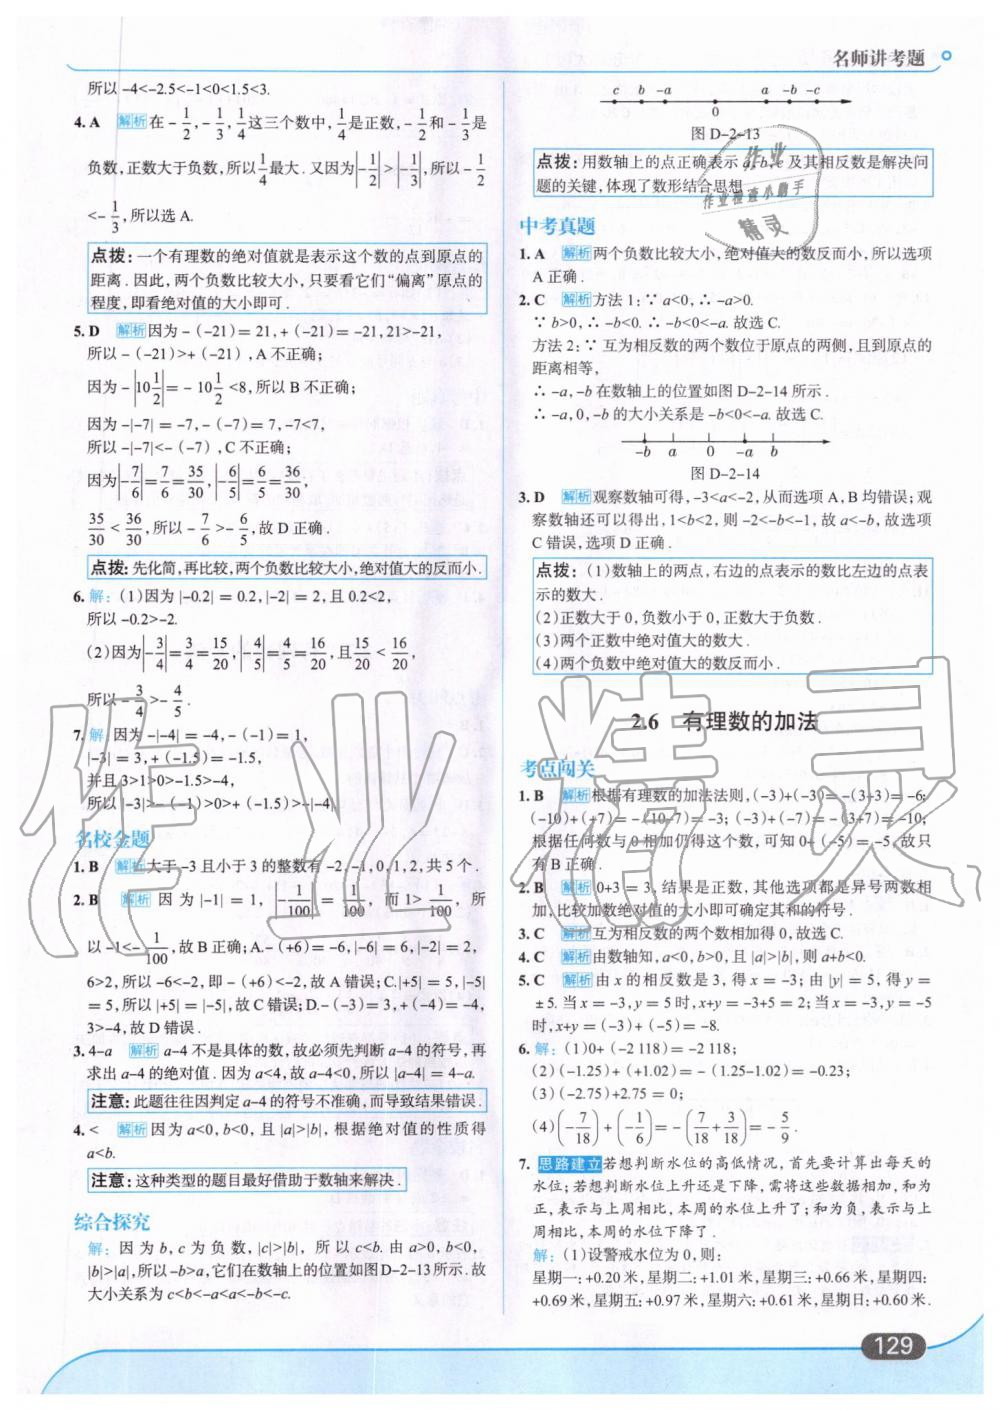 名师讲考题
所以 -4<-2.5<-1<0<1.5<3.
4. A 解析 在 -1/2, -1/3, 1/4 这三个数中, 1/4 是正数, -1/2 和 -1/3 是
负数, 正数大于负数, 所以 1/4 最大. 又因为 |-1/2|>|-1/3|, 所以 -1/2
<-1/3, 所以选 A.
点拨: 一个有理数的绝对值就是表示这个数的点到原点的
距离. 因此, 两个负数比较大小, 只要看它们“偏离”原点的
程度, 即看绝对值的大小即可.
5. D 解析 因为 -(-21)=21, +(-21)=-21, 21>-21,
所以 -(-21)>+(-21), A 不正确;
因为 -|10 1/2|=-10 1/2<8, 所以 B 不正确;
因为 -|-7|=-7, -(-7)=7, -7<7,
所以 -|-7|<-(-7), C 不正确;
因为 |-7/6|=7/6=35/30, |-6/5|=6/5=36/30,
35/30<36/30, 所以 -7/6>-6/5, 故 D 正确.
点拨: 先化简, 再比较, 两个负数比较大小, 绝对值大的反而小.
6. 解: (1)因为 |-0.2|=0.2, |-2|=2, 且 0.2<2,
所以 -0.2>-2.
(2)因为 |-3/4|=3/4=15/20, |-4/5|=4/5=16/20, 且 15/20<16/20,
所以 -3/4>-4/5.
7. 解: 因为 -|-4|=-4, -(-1)=1,
|-3|=3, +(-1.5)=-1.5,
并且 3>1>0>-1.5>-4,
所以 |-3|>-(-1)>0>+(-1.5)>-|-4|.
名校金题
1. B 解析 大于 -3 且小于 3 的整数有 -2, -1, 0, 1, 2, 共 5 个.
2. B 解析 因为 |-1|=1, |-1/100|=1/100, 而 1>1/100, 所
以 -1<-1/100, 故 B 正确; A. -(+6)=-6, |-6|=6, |-2|=2,
6>2, 所以 -6<-2, 即 -(+6)<-2, 故 A 错误; C. |+5|=5, |-5|
=5, 所以 |+5|=|-5|, 故 C 错误; D. -(-3)=3, +(-4)=-4,
3>-4, 故 D 错误.
3. 4-a 解析 a-4 不是具体的数, 故必须先判断 a-4 的符号, 再
求出 a-4 的绝对值. 因为 a<4, 故 a-4<0, 所以 |a-4|=4-a.
注意: 此题往往因判定 a-4 的符号不准确, 而导致结果错误.
4. < 解析 因为 a<0, b<0, 且 |a|>|b|, 根据绝对值的性质得
a<b.
注意: 这种类型的题目最好借助于数轴来解决.
综合探究
解: 因为 b, c 为负数, |c|>|b|, 所以 c<b. 由 a>0, b<0,
|b|>|a|, 所以 -b>a, 它们在数轴上的位置如图 D-2-13 所示. 故
大小关系为 c<b<-a<a<-b<-c.
c b -a 0 a -b -c
图 D-2-13
点拨: 用数轴上的点正确表示 a, b, c 及其相反数是解决问
题的关键, 体现了数形结合思想.
作业
作业检查小助手
精灵
中考真题
1. A 解析 两个负数比较大小, 绝对值大的数反而小, 所以选项
A 正确.
2. C 解析 方法 1: ∵ a<0, ∴ -a>0.
∵ b>0, ∴ -b<0. ∴ -b<0<-a. 故选 C.
方法 2: ∵ 互为相反数的两个数位于原点的两侧, 且到原点的
距离相等,
∴ -a, -b 在数轴上的位置如图 D-2-14 所示.
∴ -a, 0, -b 的大小关系是 -b<0<-a. 故选 C.
-b a 0 -a b
图 D-2-14
3. D 解析 观察数轴可得, -3<a<-2, 从而选项 A, B 均错误; 观
察数轴还可以得出, 1<b<2, 则 -2<-b<-1, 故 a<-b, 故选项
C 错误, 选项 D 正确.
点拨: (1)数轴上的两点, 右边的点表示的数比左边的点表
示的数大.
(2)正数大于 0, 负数小于 0, 正数大于负数.
(3)两个正数中绝对值大的数大.
(4)两个负数中绝对值大的数反而小.
2.6 有理数的加法
考点闯关
1. B 解析 根据有理数的加法法则, (-3)+(-3)=-(3+3)=-6;
(-10)+(+7)=-(10-7)=-3; (-3)+(-7)=-(3+7)=-10;
根据任何数与 0 相加仍得这个数, 可知 0+(-5)=-5. 故只
有 B 正确.
2. B 解析 0+3=3, 结果是正数, 其他选项都是异号两数相
加, 比较加数绝对值的大小即可确定其和的符号.
3. C 解析 互为相反数的两个数相加得 0, 故选 C.
4. C 解析 由数轴知, a<0, b>0, 且 |a|>|b|, 则 a+b<0.
5. C 解析 由 x 的相反数是 3, 得 x=-3; 由 |y|=5, 得 y=
±5. 当 x=-3, y=5 时, x+y=-3+5=2; 当 x=-3, y=-5
时, x+y=(-3)+(-5)=-8.
6. 解: (1)0+(-2 118)=-2 118;
(2)(-1.25)+(+1.02)=-(1.25-1.02)=-0.23;
(3)(-2.75)+2.75=0;
(4)(-7/18)+(-1/6)=-(7/18+3/18)=-5/9.
7. 思路建立 若想判断水位的高低情况, 首先要计算出每天的
水位; 若想判断水位上升还是下降, 需将这些数据相加, 和为
正, 表示与上周相比, 本周的水位上升了; 和为负, 表示与上
周相比, 本周的水位下降了.
解: (1)设警戒水位为 0, 则:
星期一: +0.20 米, 星期二: +1.01 米, 星期三: +0.66 米, 星期四:
+0.69 米, 星期五: +0.97 米, 星期六: +0.61 米, 星期日: +0.60 米.
作业精灵
129